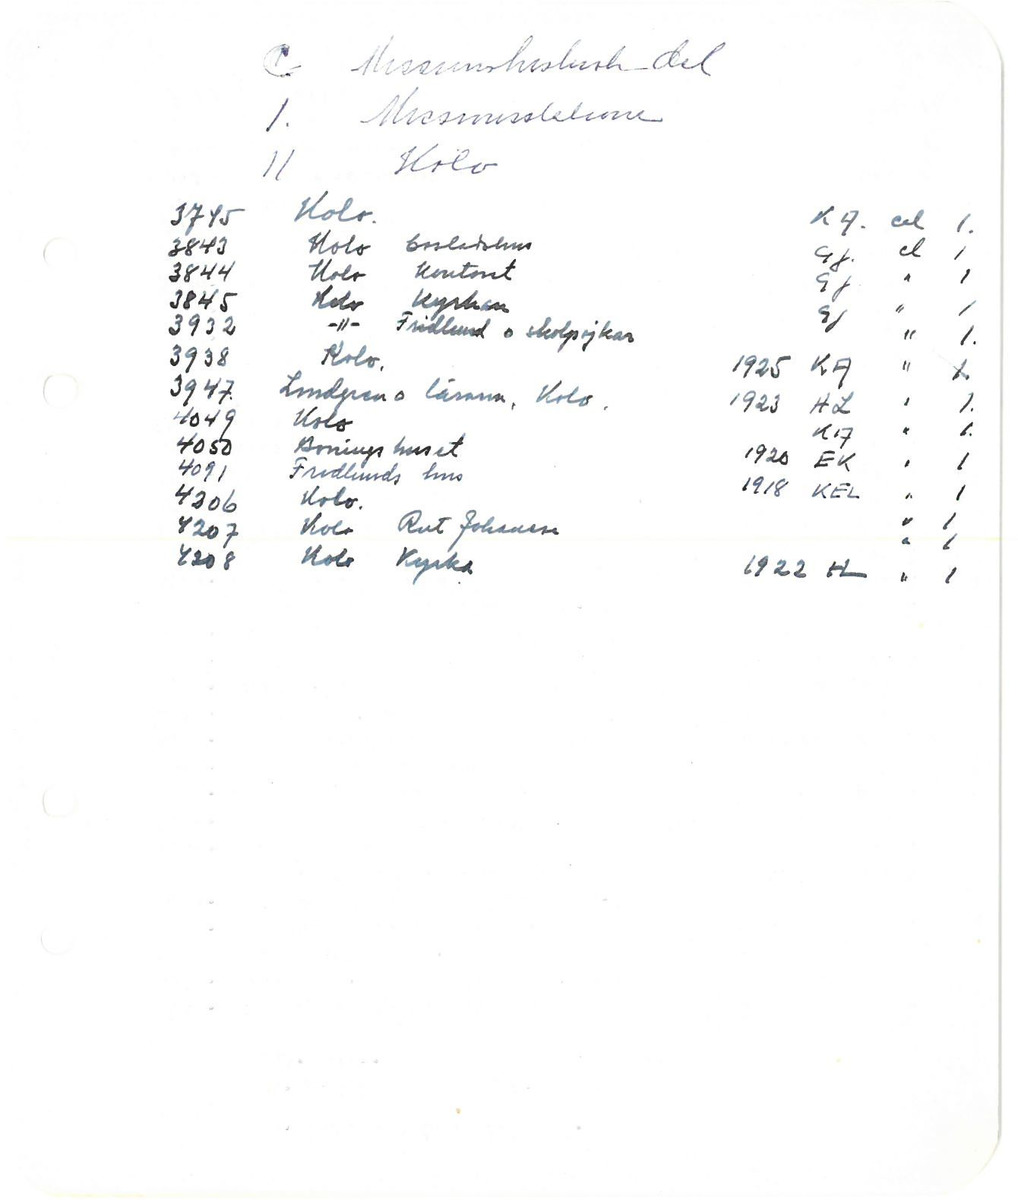 C Missionshistorisk del
1. Missionsstationer
11 Kolo
3745 Kolo. K A. cel 1.
3843 Kolo bostadshus Gj. cl 1
3844 Kolo Kontoret Gj " 1
3845 Kolo Kyrkan Gj " 1
3932 -"- Fridlund o skolpojkar " 1.
3938 Kolo. 1925 KA " 1.
3947. Lindgren o lärarna, Kolo. 1923 HL " 1.
4049 Kolo KA " 1.
4050 Boningshuset 1920 EK " 1
4091 Fridlunds hus 1918 KEL " 1
4206 Kolo. " 1
4207 Kolo Rut Johansson " 1
4208 Kolo Kyrka 1922 HL " 1